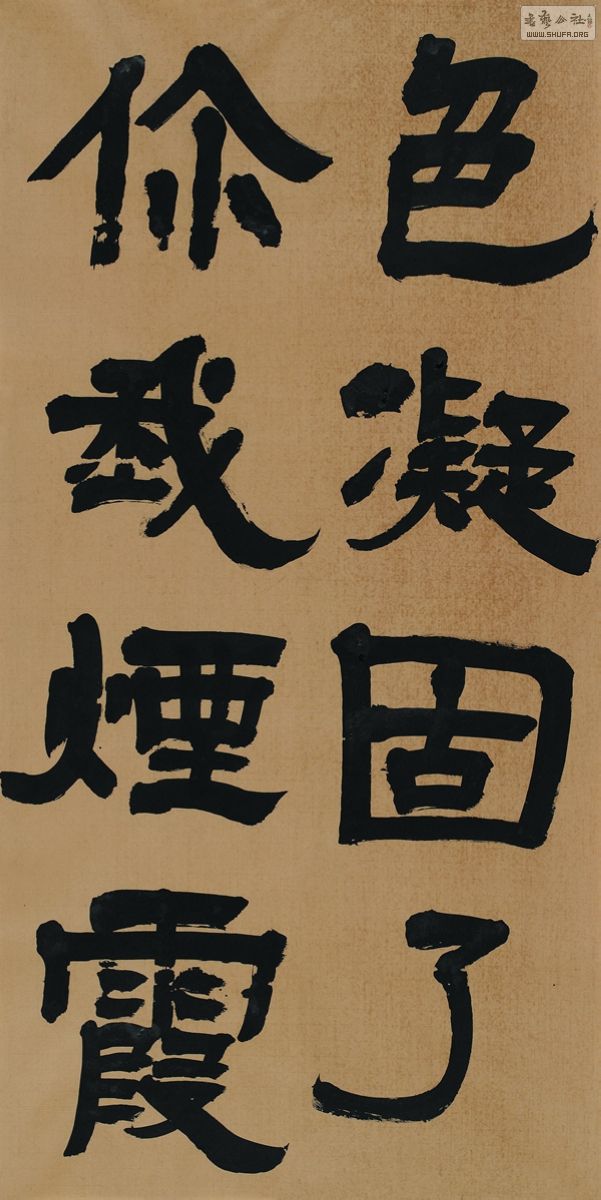 色凝固了
你我煙霞
書藝公社
WWW.SHUFA.ORG